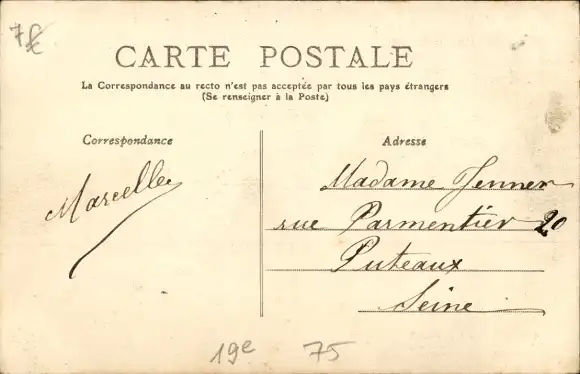 7€
CARTE POSTALE
La Correspondance au recto n'est pas acceptée par tous les pays étrangers
(Se renseigner à la Poste)
Correspondance
Adresse
Marcelle
Madame Jenner
rue Parmentier 20
Puteaux
Seine
19e 75